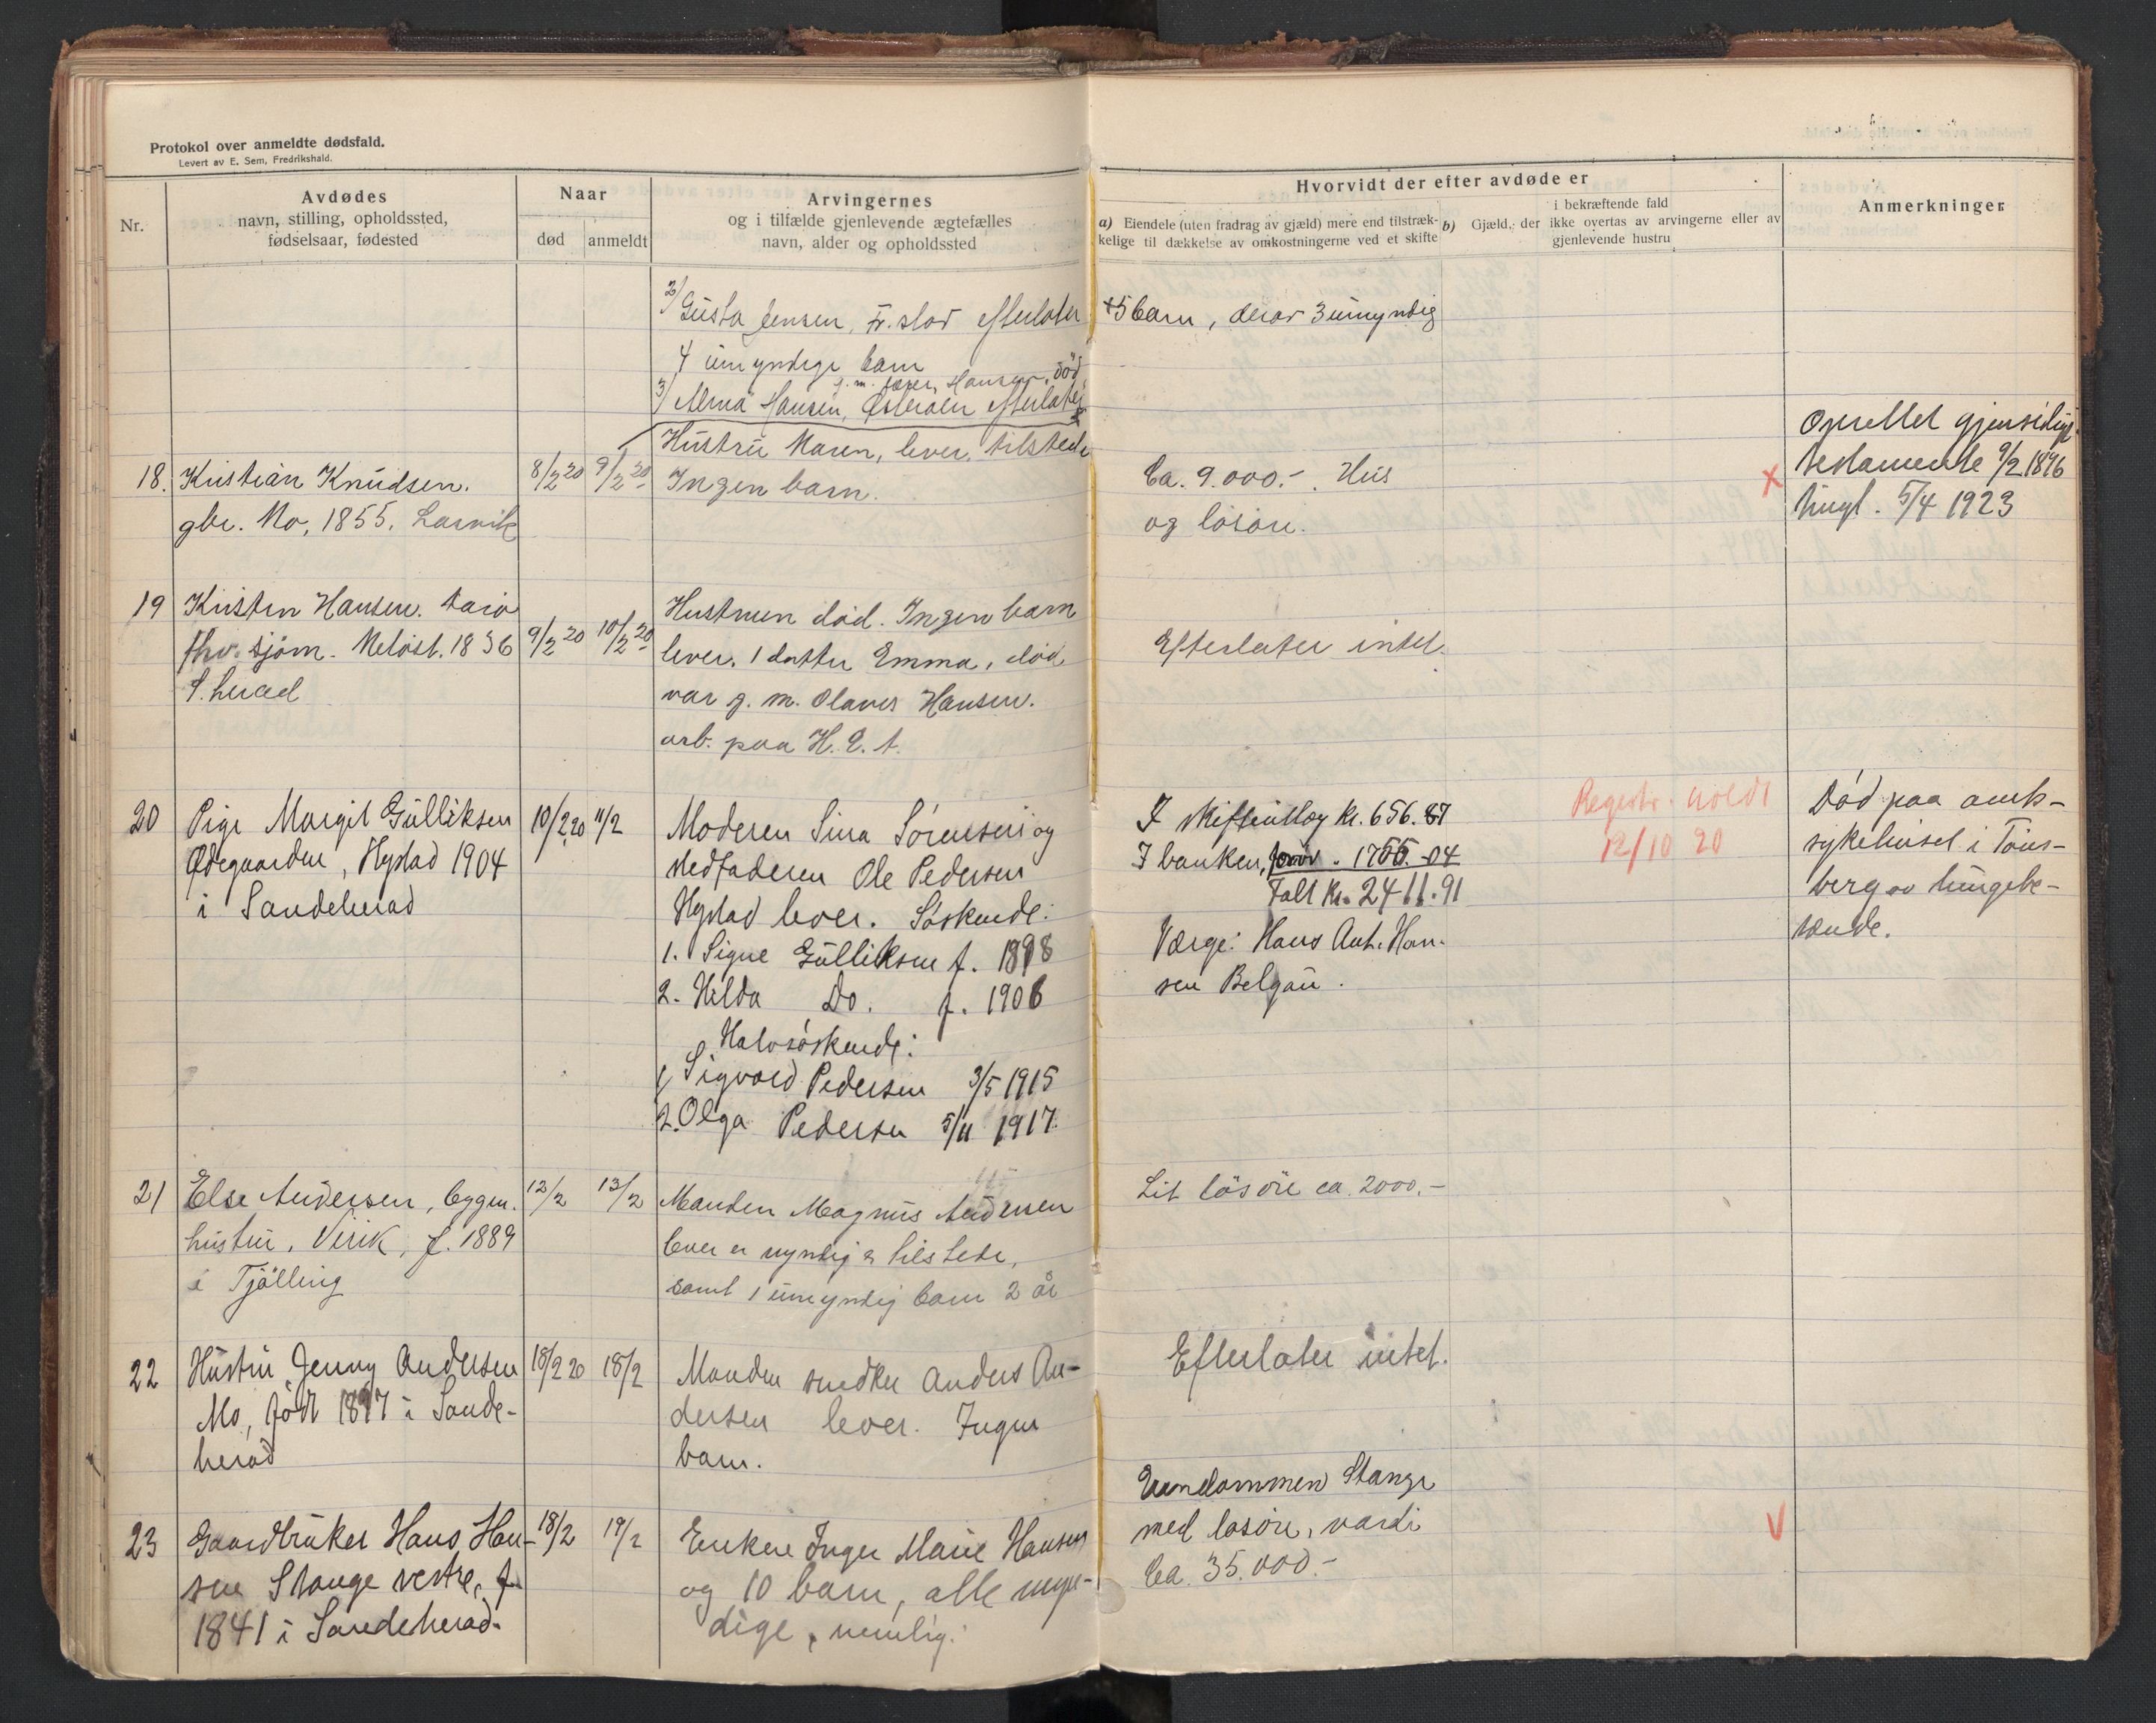 Protokol over anmeldte dødsfald.
Levert av E. Sem, Fredrikshald.
Nr.
Avdødes
navn, stilling, opholdssted,
fødselsaar, fødested
Naar
død
anmeldt
Arvingernes
og i tilfælde gjenlevende ægtefælles
navn, alder og opholdssted
Hvorvidt der efter avdøde er
a) Eiendele (uten fradrag av gjæld) mere end tilstræk-
kelige til dækkelse av omkostningerne ved et skifte
b) Gjæld, der i bekræftende fald
ikke overtas av arvingerne eller av
gjenlevende hustru
Anmerkninger
2/ Gusta Jensen, Fr.stad efterlater
+5 barn, derav 3 umyndig
4 umyndige barn
g. m. Hansen, död
3/ Alma Hansen, Österöen efterlater
18.
Kristian Knudsen.
gbr. Mo, 1855, Larvik
8/2 20
9/2 20
Hustru Maren, lever, tilstede
Ingen barn.
Ca. 9.000.- Hus
og løsøre.
x
Oprettet gjensidigt
testamente 9/2 1896
tingl. 5/4 1923
19
Kristen Hansen.
fhv. sjöm. 1836
S.herad
9/2 20
10/2 20
Hustruen död. Ingen barn
lever. 1 datter Emma, död,
var g. m. Olaves Hansen.
arb. paa H. E. A.
Efterlater intet.
20
Pige Margit Gulliksen
Ødegaarden, Hystad 1904
i Sandeherad
10/2 20
11/2
Moderen Sina Sörensen og
stedfaderen Ole Pedersen
Hystad lever. Söskende:
1. Signe Gulliksen f. 1898
2. Hilda Do. f. 1906
Halvsöskende:
1, Sigvard Pedersen 3/5 1915
2. Olga Pedersen 5/11 1917.
I skifteutlæg kr. 656.87
I banken, 1755.-04
Talt Kr. 2411.91
Værge: Hans Ant. Han-
sen Belgau.
Registr. holdt
12/10 20
Död paa amts-
sykehuset i Töns-
berg av lungebe-
tænde.
21
Else Andersen, bygm.
hustru, Virik, f. 1889
i Tjölling
12/2
13/2
Manden Magnus Andersen
lever er myndig & tilstede,
samt 1 umyndig barn 2 år
Lit lösöre ca. 2000.-
22
Hustru Jenny Andersen
Mo, født 1897 i Sande-
herad
18/2 20
18/2
Manden snedker Anders An-
dersen lever. Ingen
barn.
Efterlater intet.
23
Gaardbruker Hans Han-
sen Stange vestre, f.
1841 i Sandeherad.
18/2
19/2
Enken Inger Marie Hansen
og 10 barn, alle myn-
dige, nemlig:
Eiendommen Stange
med løsøre, værdi
Ca. 35.000.-
V